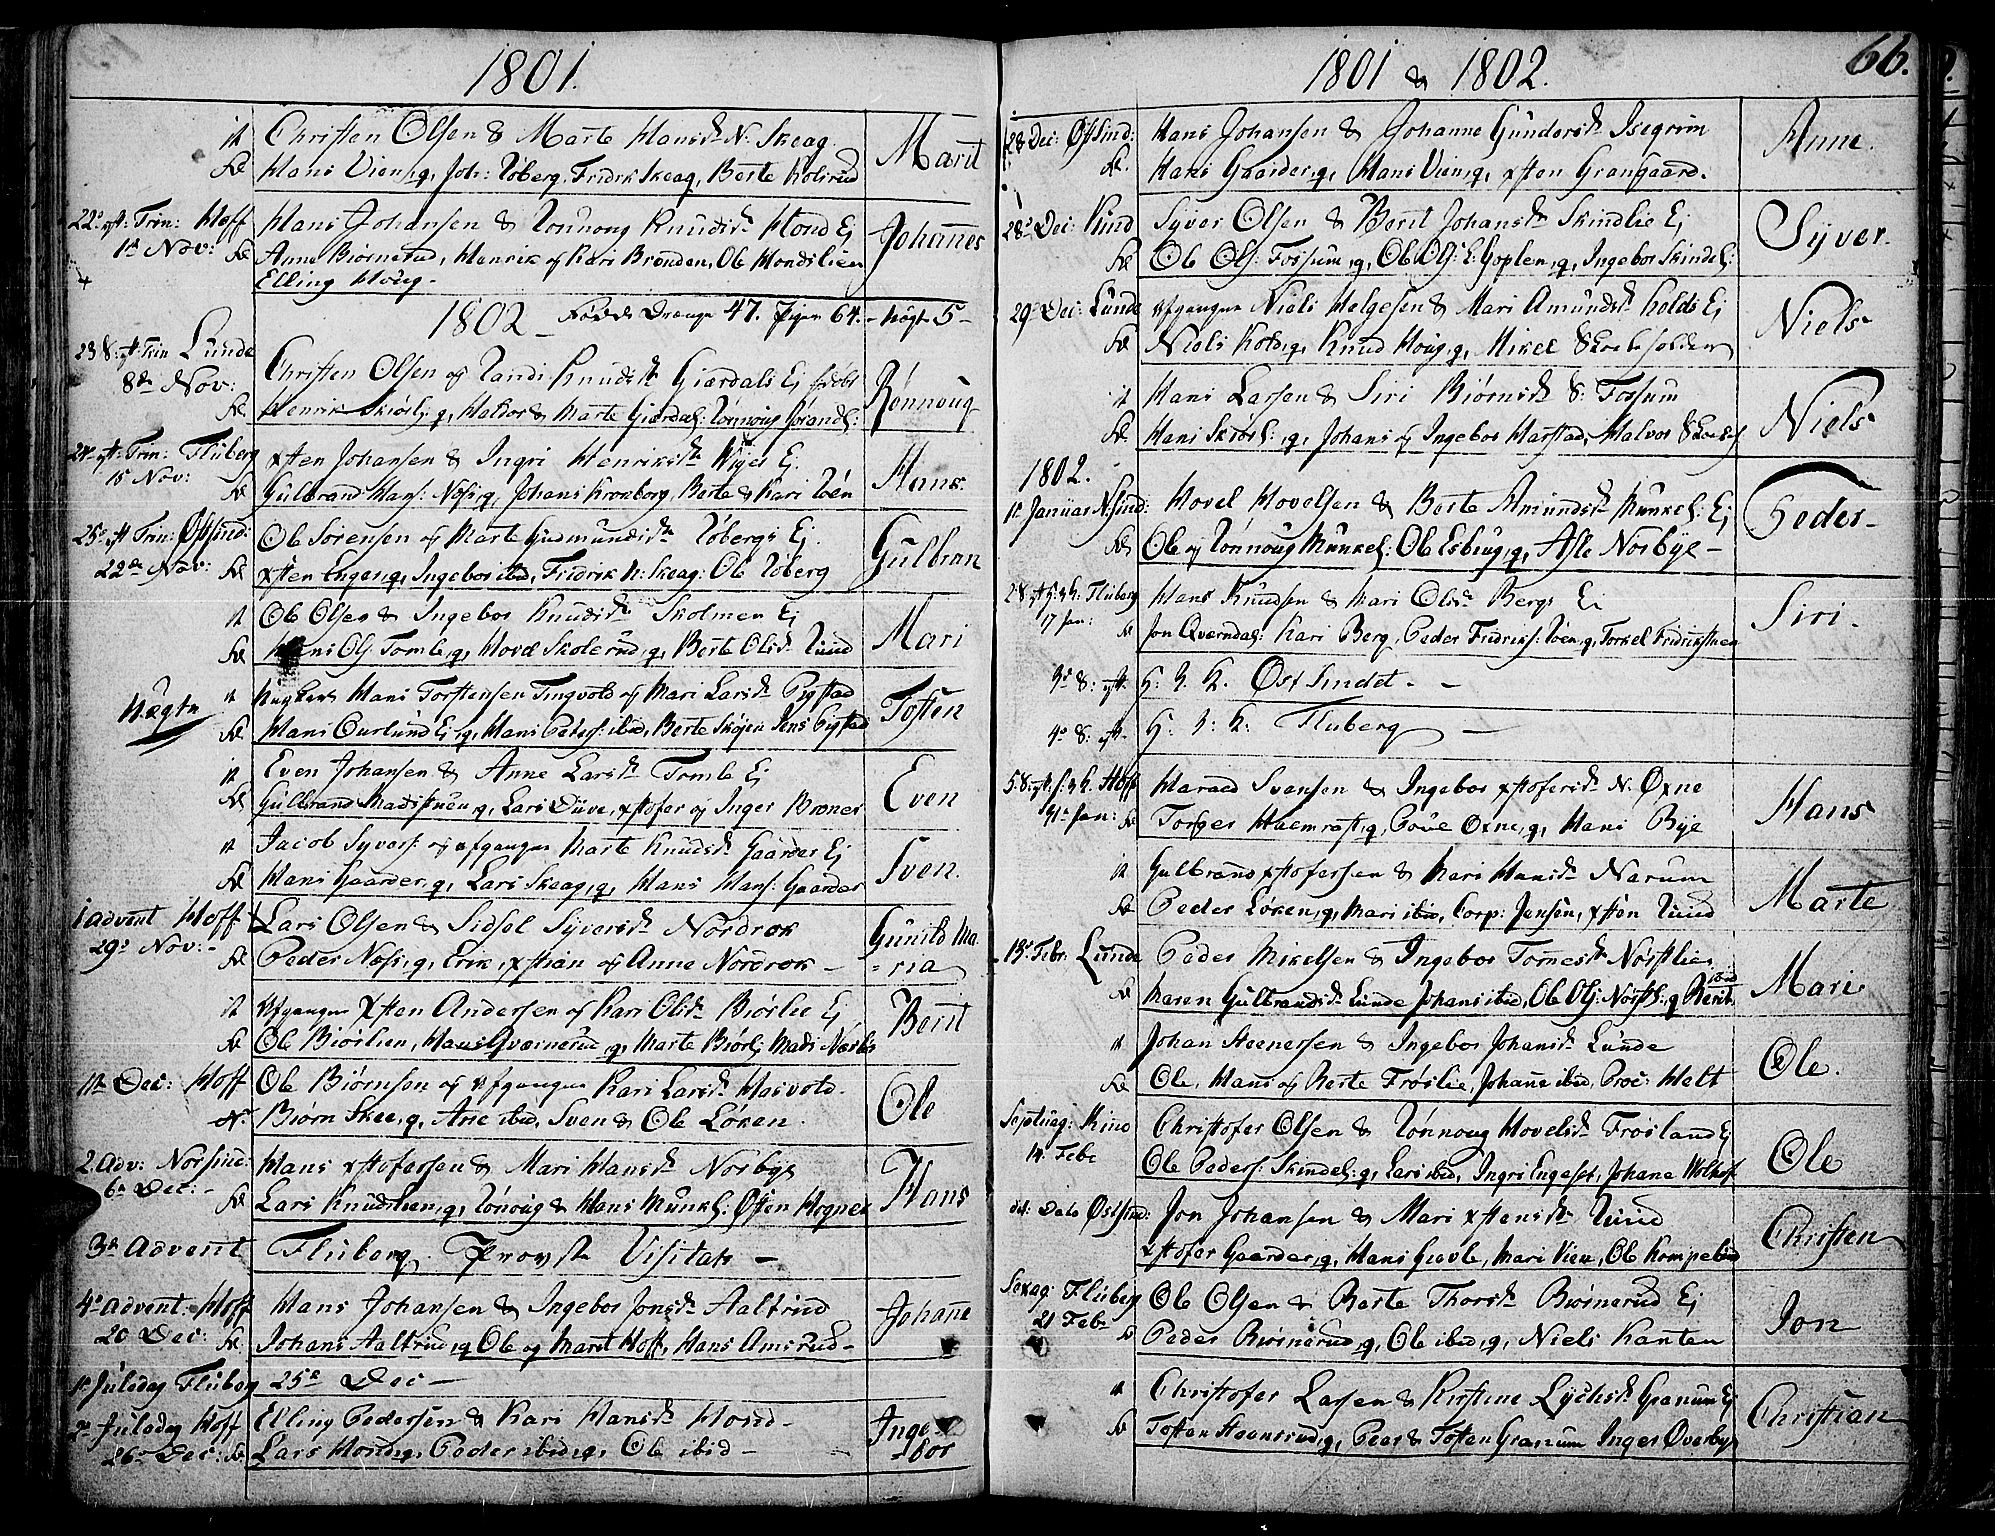 1801.
it Christen Olsen & Marte Hansd. N. Skeag. Marit
Fad. Hans Vien, q, Joh: Røberg, Fridrk Skeag, Berte Kolsrud
22. eft: Trin: Hoff Hans Johansen & Rønnoug Knudsd. Hond Ej Johannes
1te Nov: Fad. Anne Biørnerud, Henrik og Kari Brenden, Ole Hondslien
Elling Houg.
1802 Fødde Drenge 47. Piger 64. Uægte 5
23 S. eft. Trin Lunde Christen Olsen og Randi Knudsd. Giærdals Ej Rønnoug
8de Nov:
Fad. Henrik Skiøsl: q, Haldor & Marte Giærdal:
24. eft: Trin: Fluberg xsten Johansen & Ingri Henriksd. Ej Hans.
15 Nov: Fad. Gulbrand Hans: Nøss, q, Johans Kronborg, Berte & Kari Røen
25. eft Trin: Østsind: Ole Sørensen og Marte Gudmundsd. Røbergs Ej. Gulbran
22de Nov: Fad. xsten Enger, q, Ingebor ibid, Fridrik N: Skeag: Ole Røberg
it Ole Olsen & Ingebor Knudsd. Skolmen Ej Mari
Fad. Hans Ols: Tomle, q, Hovel Skolerud, q, Berte Olsd. Rud
Uægte it Hans Torstensen Tingvold og Mari Larsd. Tosten
Fad. Hans Ourlund Ej, q, Hans Peders: ibid, Berte Skøyen
it Even Johansen & Anne Larsd. Tomle Ej Even
Fad. Gulbrand q, Lars Düve, xstofer og Inger Broner
it Jacob Syvers: og afgangne Marte Knudsd. Gaarder Ej Sven.
Fad. Hans Gaarder, q, Lars Skeag, q, Hans Hans: Gaarder
1 Advent Hoff Lars Olsen & Sidsel Syversd. Nordrok Gunild Ma=
29. Nov: Fad. Peder Nøss, q, Erik, xstian og Anne Nordrok =ria
it Afgangne xsten Andersen og Kari Olsd. Biørlie Ej Berit
Fad. Ole Biørlien, Hans Qværnerud, q, Marte Biørl:
1te Dec: Hoff Ole Biørnsen og Afgangne Kari Larsd. Hasvold. Ole
Biørn Skee, q, Arie ibid, Sven & Ole Løken.
2. Adv: Norsind: Hans xstofersen & Mari Hansd. Norbye Hans
6te Dec: Fad. Lars Knudslien, q, Rønoug & Hans Munkl:
3de Advent Fluberg Provste Visitats
4. Advent: Hoff Hans Johansen & Ingebor Jonsd. Aaltrud Johane
20 Dec: Fad. Johans Aaltrud, q, Ole og Marit Hoff, Hans Amsrud
1te Juledag Fluberg 25de Dec
2. Juledag Hoff Elling Pedersen & Kari Hansd. Hond Inge=
26. Dec: Fad. Lars Hond, q, Peder ibid, q, Ole ibid =bor
1801 & 1802. 66.
28 Dec: Østsind: Hans Johansen & Johanne Gundersd. Isegrim Anne.
Fad. Hans Gaarder, q, Hans Vien, q, xsten Grangaard.
28. Dec: Kind Syver Olsen & Berit Johansd. Skindlie Ej Syver
Fad. Ole Ols: Fossum, q, Ole Ols: E: Goplen, q, Ingebor Skindel:
29. Dec: Lunde Afgangne Niels Helgesen & Mari Amundsd. Holds Ej Niels
Fad. Niels Hold, q, Knud Houg, q, Mikel
it Hans Larsen & Siri Biørnsd. S: Fossum Niels
Fad. Hans Skiøsl: q, Johans og Ingebor Harstad, Halvor
1802.
1te Januar N:Sind: Hovel Hovelsen & Berte Amundsd. Munkel: Ej Peder
Fad. Ole og Rønnoug Munkel: Ole Esbeug, q, Asle Norbye
2 S: eft H:3K: Fluberg Hans Knudsen & Mari Olsd. Bergs Ej Siri.
17 Jan: Fad. Jon Qverndal: Kari Berg, Peder Fridriks: Røen, q, Torkel
3. S: eft. H: 3. K. Øst Sindet
4. S: eft. H: 3: K. Fluberg
5 S: eft. H: 3 K. Hoff Harald Svensen & Ingebor xstofersd. N: Oxne Hans
31te Jan: Fad. Torger Haemrast, q, Poue Oxne, q, Hans Bye
it Gulbrand xstofersen & Kari Hansd. Narum Marte
Fad. Peder Løken, q, Mari ibid, Corp: Jensen, xsten Rud
13. Febr. Lunde Peder Mikelsen & Ingebor Tomesd. Nøstlie Mari
Fad. Maren Gulbrandsd. Lunde Johans ibid, Ole Ols: Nøstl: q Berit ibid
it Johan Steenersen & Ingebor Johansd. Lunde Ole.
Fad. Ole, Hans og Berte Frøslie, Johane ibid, Proc: Helt
Septuag: Kind Christofer Olsen & Rønnoug Hovelsd. Frøsland Ej Ole
14 Febr Ole Peders: Skindel: q, Lars ibid, Ingri Engeset, Johane
dit: Dato Østsind: Jon Johansen & Mari xstensd. Rud Christen
xstofer Gaarder, q, Hans Giøvle, Mari Vien, Ole Kompelie
Sexag: Fluberg Ole Olsen & Berte Thorsd. Biørnerud Ej Jon
21 Febr Fad. Peder Biørnerud, q, Ole ibid, q, Niels Kanten
it Christofer Larsen & Kirstine Lychesd. Granum Ej Christian
Fad. Tosten Steensrud, q, Peer & Tosten Granum Inger Øverby